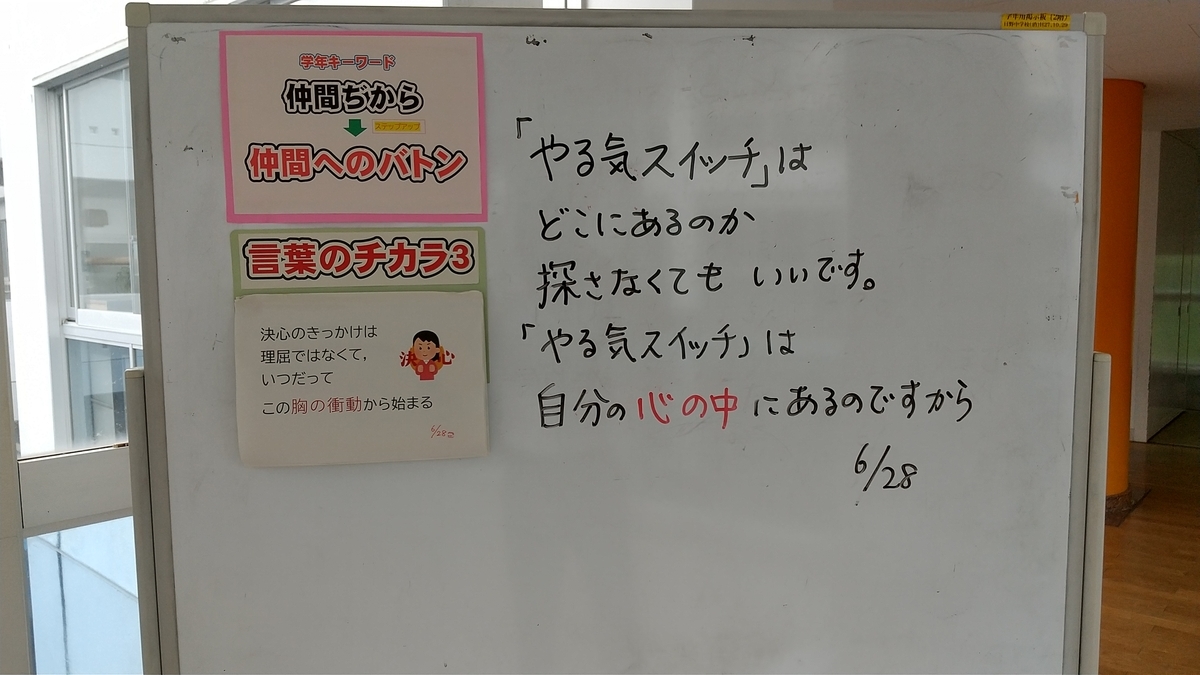 学年キーワード
仲間ぢから
ステップアップ
仲間へのバトン
言葉のチカラ3
決心のきっかけは
理屈ではなくて,
いつだって
この胸の衝動から始まる
決心
6/28
「やる気スイッチ」は
どこにあるのか
探さなくても いいです。
「やる気スイッチ」は
自分の心の中にあるのですから
6/28